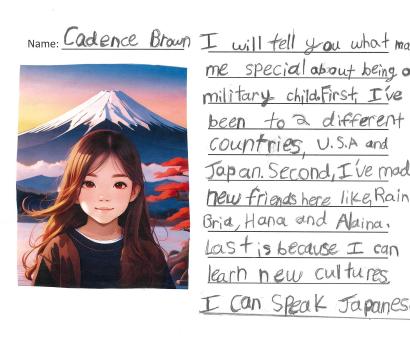 Name: Cadence Brown
I will tell you what ma
me special about being a
military child. First, I've
been to 2 different
countries, U.S.A and
Japan. Second, I've mad
new friends here like, Rain
Bria, Hana and Alaina.
Last is because I can
learn new cultures
I can speak Japanes